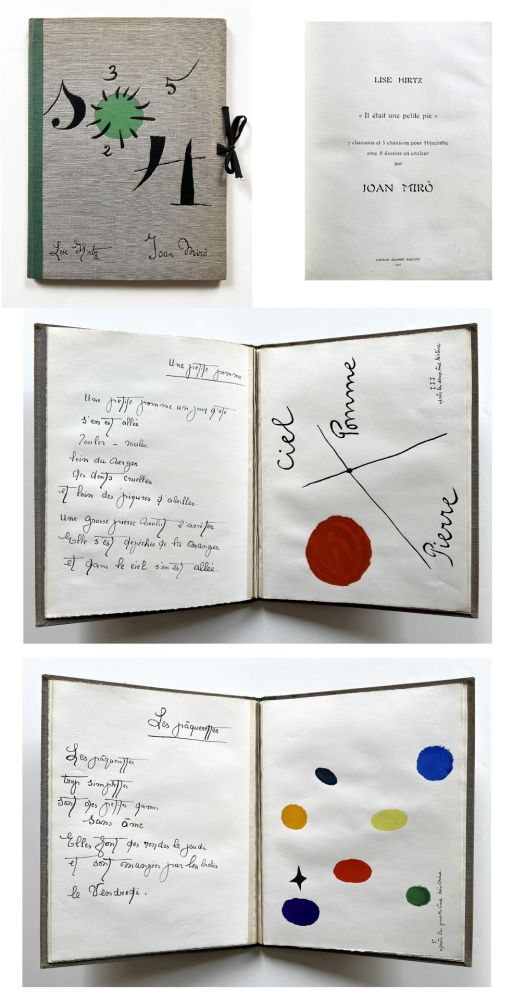 3
5
2
4
Lise Hirtz
Joan Miró
LISE HIRTZ
« Il était une petite pie »
7 chansons et 3 chansons pour Hyacinthe
avec 8 dessins en couleur
par
JOAN MIRÒ
EDITIONS JEANNE BUCHER
Une petite pomme
Une petite pomme un jour d'été
s'en est allée
Rouler - rouler
loin du berger
des dents cruelles
et loin des piqures d'abeilles.
Une grosse pierre voulut l'arrêter
Elle s'est dépéchée de la manger
et dans le ciel s'en est allée.
Ciel
Pomme
Pierre
III
Les pâquerettes
Les pâquerettes
trop simplettes
sont des petites dames
sans âme
Elles font des rondes le jeudi
et sont mangées par les brebis
le Vendredi.
V